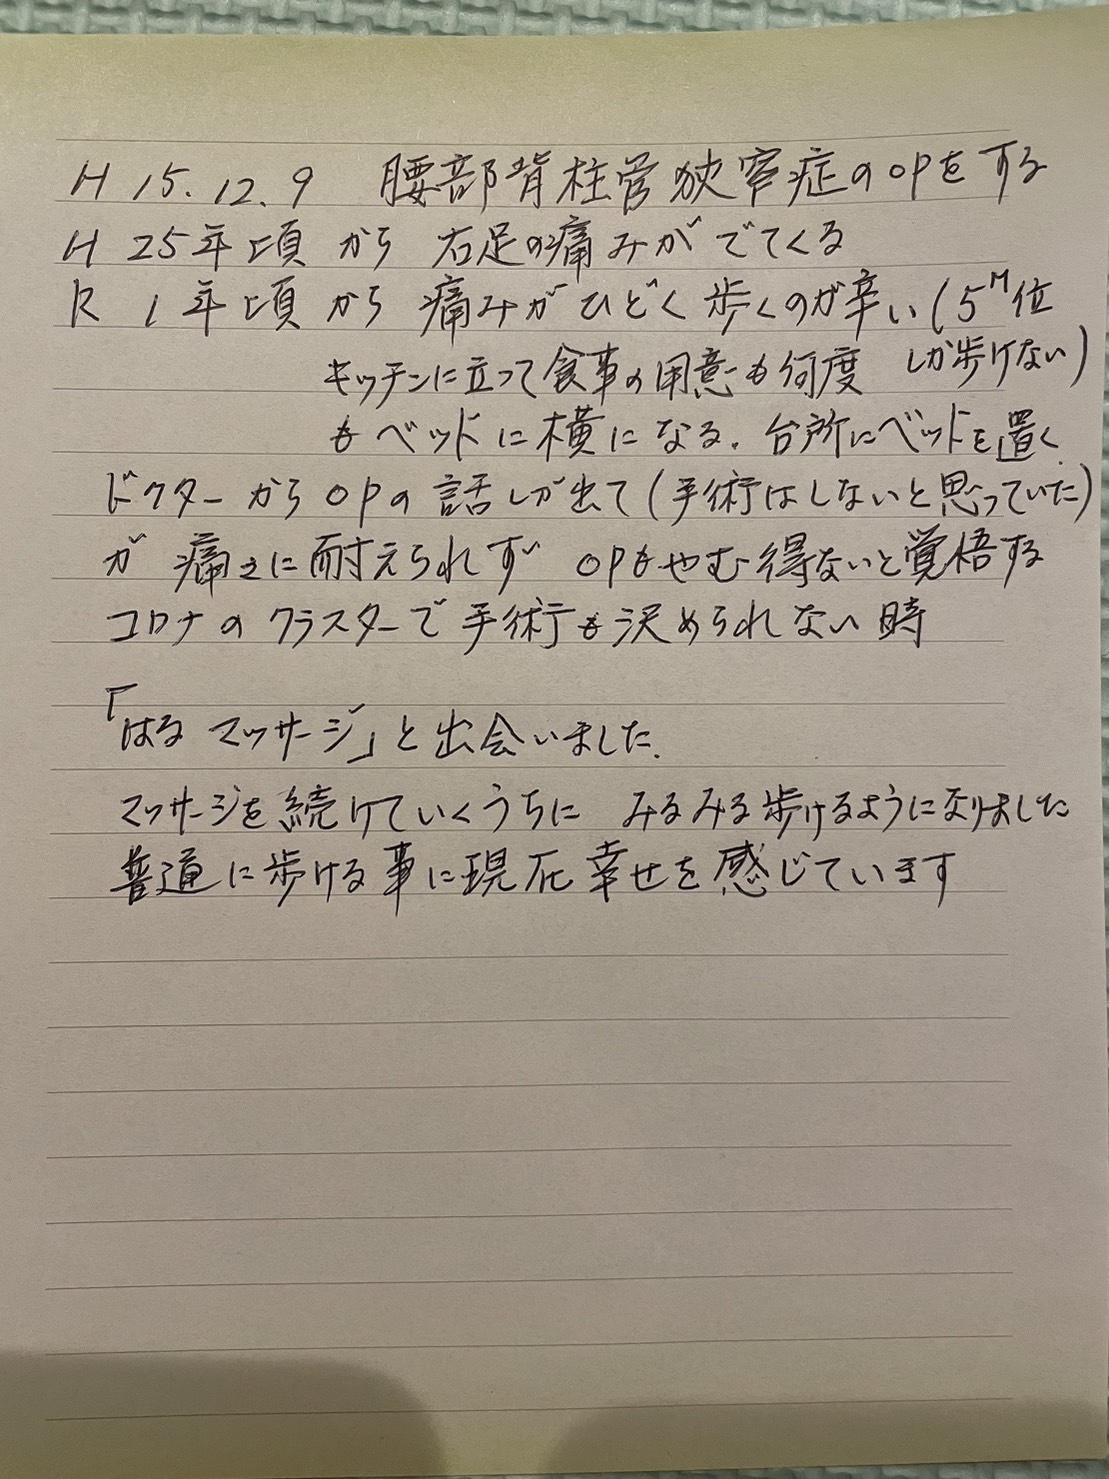 H 15.12.9 腰部背柱管狭窄症のOPをする
H 25年頃から 右足の痛みがでてくる
R 1年頃から 痛みがひどく歩くのが辛い(5M位
しか歩けない)
キッチンに立って食事の用意も何度
もベッドに横になる. 台所にベットを置く.
ドクターからOPの話しが出て(手術はしないと思っていた)
が 痛さに耐えられず OPもやむ得ないと覚悟する
コロナのクラスターで手術も決められない時
「はるマッサージ」と出会いました.
マッサージを続けていくうちに みるみる歩けるようになりました
普通に歩ける事に現在幸せを感じています